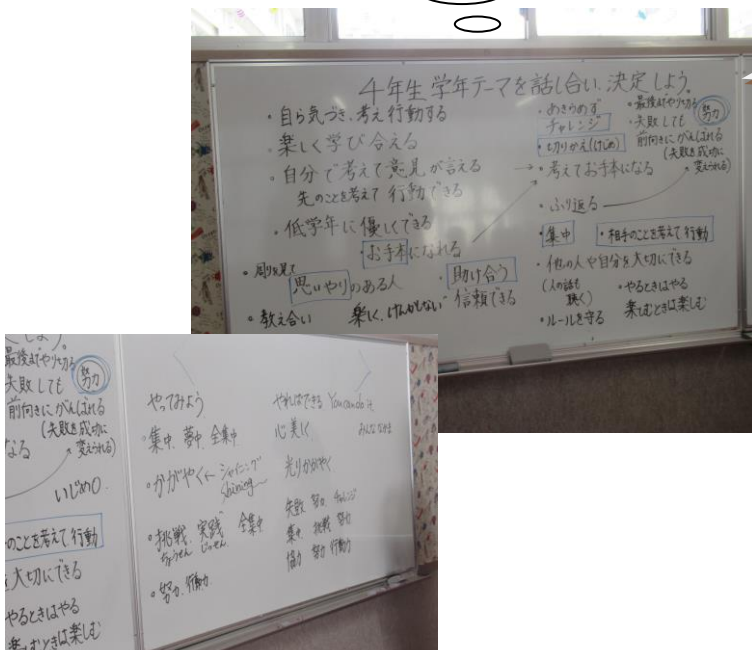 4年生 学年テーマを話し合い、決定しよう。
・自ら気づき、考え行動する
・楽しく学び合える
・自分で考えて意見が言える
先のことを考えて行動できる
・低学年に優しくできる
・お手本になれる
・周りを見て
思いやりのある人
・助け合う
・教え合い
楽しく、けんかしない
信頼できる
・あきらめず
チャレンジ
・切りかえ(けじめ)
→・考えてお手本になる
・ふり返る
・集中
・相手のことを考えて行動
・他の人や自分を大切にできる
(人の話も
聴く)
・ルールを守る
・最後までやり切る
・失敗しても
努力
前向きにがんばれる
(失敗を成功に
変えられる)
・やるときはやる
楽しむときは楽しむ
しよう。
最後までやり切る
失敗しても
努力
前向きにがんばれる
(失敗を成功に
変えられる)
なる
いじめ0
のことを考えて行動
大切にできる
やるときはやる
楽しむときは楽しむ
やってみよう
・集中 夢中 全集中
・かがやく シャイニング
Shining
・挑戦 実践 全集中
ちょうせん じっせん
・努力、行動力
やればできる You can do it
心美しく
みんななかよ
光りかがやく
失敗 努力 チャレンジ
集中 挑戦 努力
協力 努力 行動力